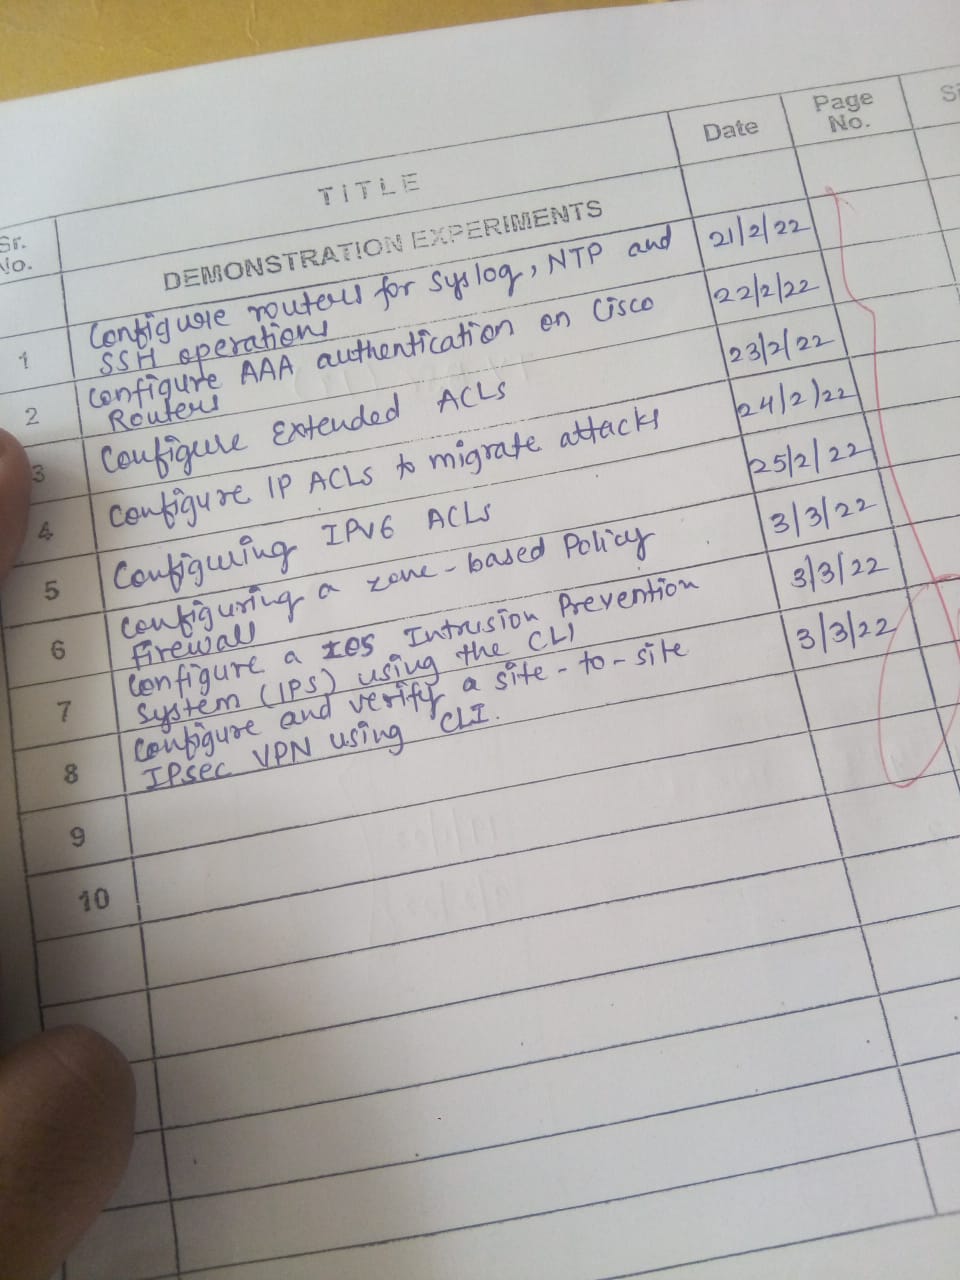 Sr. No. TITLE Date Page No.
DEMONSTRATION EXPERIMENTS
1 Configure routers for Syslog, NTP and 21/2/22
SSH operations
2 Configure AAA authentication on Cisco 22/2/22
Routers
3 Configure Extended ACLs 23/2/22
4 Configure IP ACLs to migrate attacks 24/2/22
5 Configuring IPv6 ACLs 25/2/22
6 Configuring a zone-based Policy 3/3/22
Firewall
7 Configure a IOS Intrusion Prevention 3/3/22
System (IPS) using the CLI
8 Configure and verify a site-to-site 3/3/22
IPsec VPN using CLI.
9
10